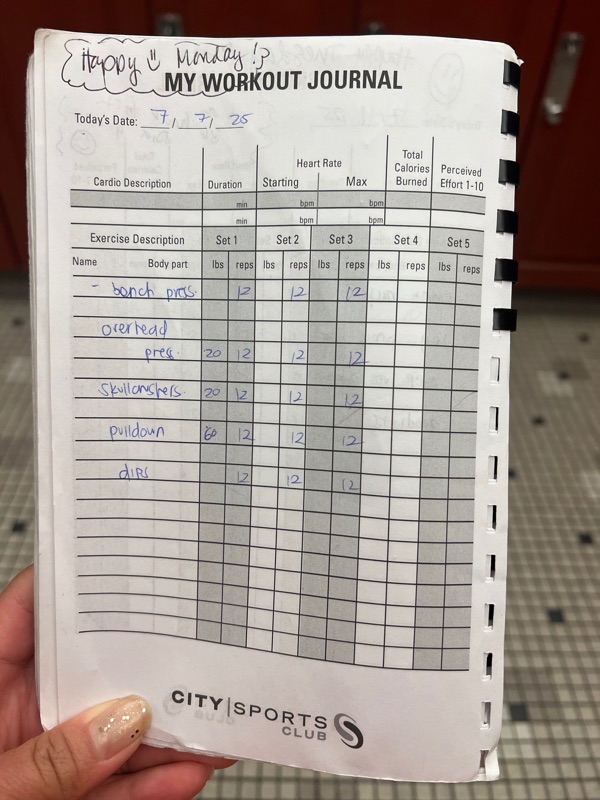 Happy Monday!
MY WORKOUT JOURNAL
Today's Date: 7, 7, 25
Heart Rate
Total Calories Burned
Perceived Effort 1-10
Cardio Description Duration Starting Max
min bpm bpm
min bpm bpm
Exercise Description Set 1 Set 2 Set 3 Set 4 Set 5
Name Body part lbs reps lbs reps lbs reps lbs reps lbs reps
- bench press. 12 12 12
overhead
press. 20 12 12 12
skullcrushers. 20 12 12 12
pulldown 60 12 12 12
dips 12 12 12
CITY|SPORTS
CLUB